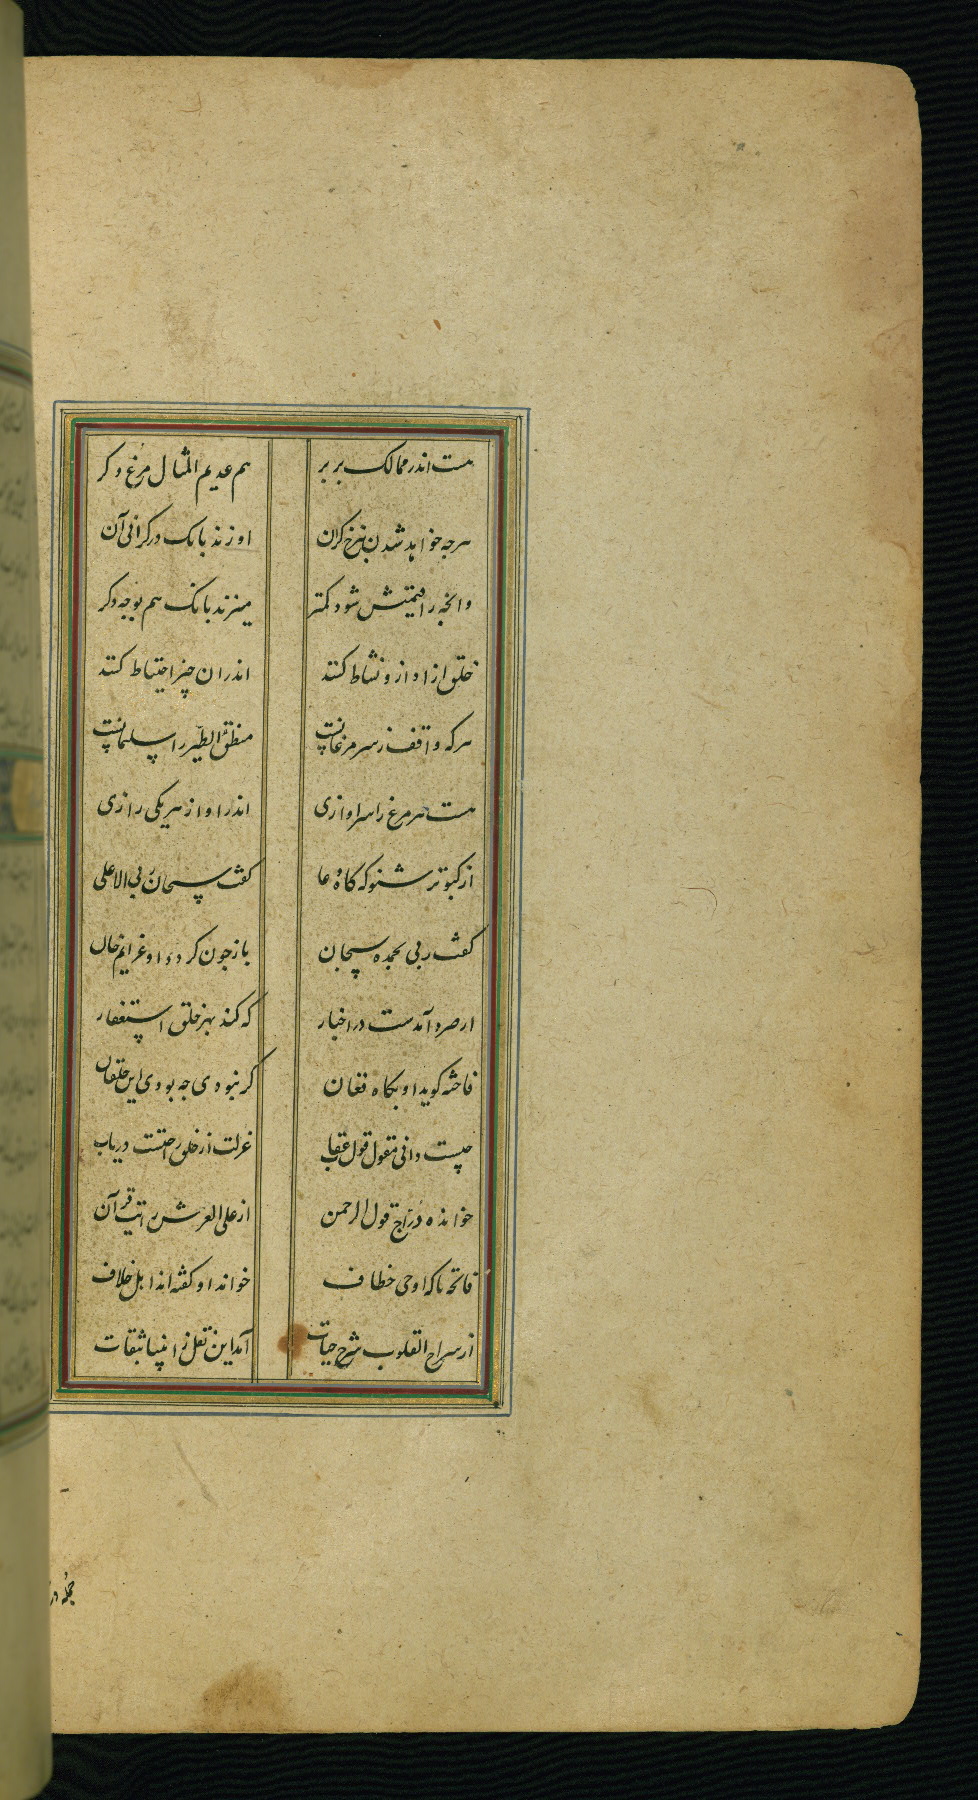 هست اندر ممالک بربر هم عدیم المثال مرغ دکر
هرچه خواهد شدن بنرخ کران او زند بانک در کرانی آن
وانچه را قیمتش شود کمتر میزند بانک هم بوجه دکر
خلق از اواز و نشاط کنند اندران چیز احتیاط کنند
هرکه واقف ز سر مرغانست منطق الطیر را سلیمانست
هست هر مرغ را سراوازی اندر اواز هر یکی رازی
از کبوتر شنو که کاه دعا کفت سبحان ربی الاعلی
کفت ربی بحمده سبحان باز چون کرد او
از صره آمدست در اخبار که کند بهر خلق استغفار
فاخته کوید او بکاه فغان کر نبودی چه بودی این خلقان
چیست دانی مقول قول عقاب عزلت از خلق دریاب
خوانده دراج قول الرحمن از علی العرش قرآن
فاتحه خطاف خواند او کفته اند بل خلاف
از سراج القلوب شرح حیات آمد این نقل ز انبیا ثقات
جمله در